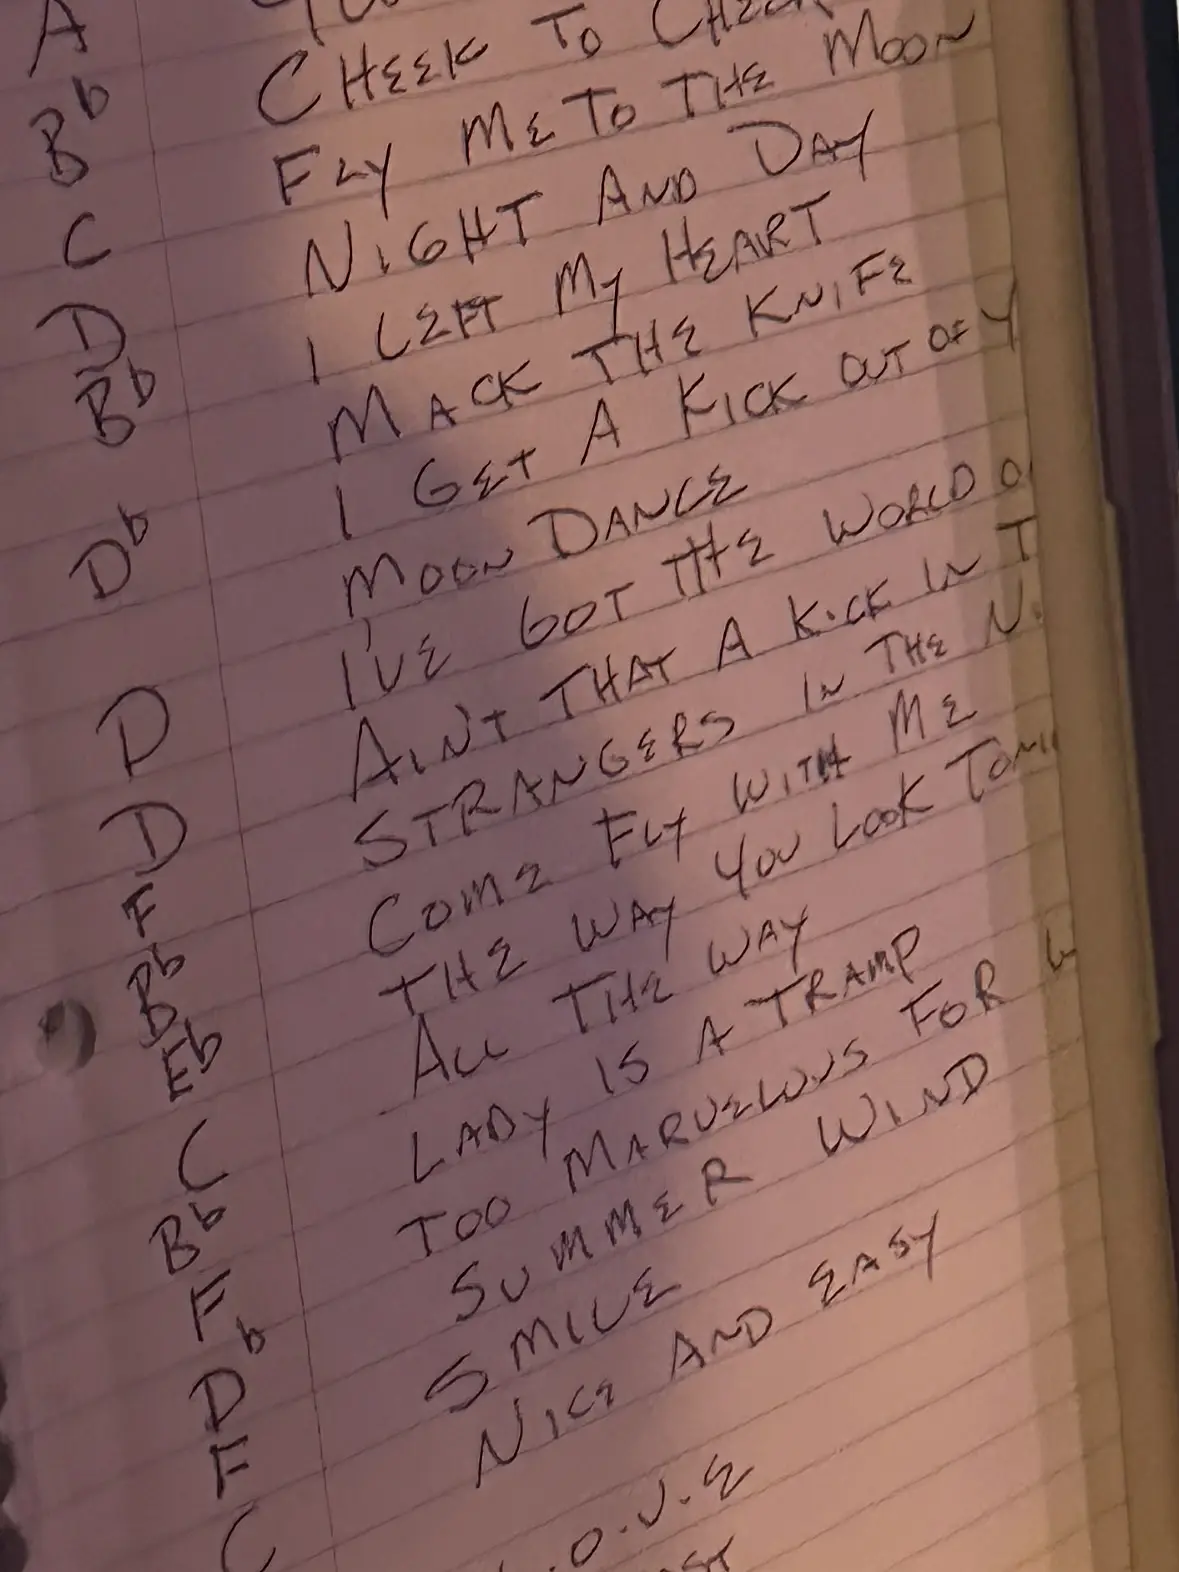 A
Bb CHEEK TO CHEEK
C FLY ME TO THE MOON
D NIGHT AND DAY
Bb I LEFT MY HEART
MACK THE KNIFE
Db I GET A KICK OUT OF Y
MOON DANCE
D I'VE GOT THE WORLD O
D AIN'T THAT A KICK IN T
F STRANGERS IN THE NI
Bb COME FLY WITH ME
Eb THE WAY YOU LOOK TONI
C ALL THE WAY
Bb LADY IS A TRAMP
F TOO MARVELOUS FOR W
Db SUMMER WIND
F SMILE
C NICE AND EASY
.O.V.E